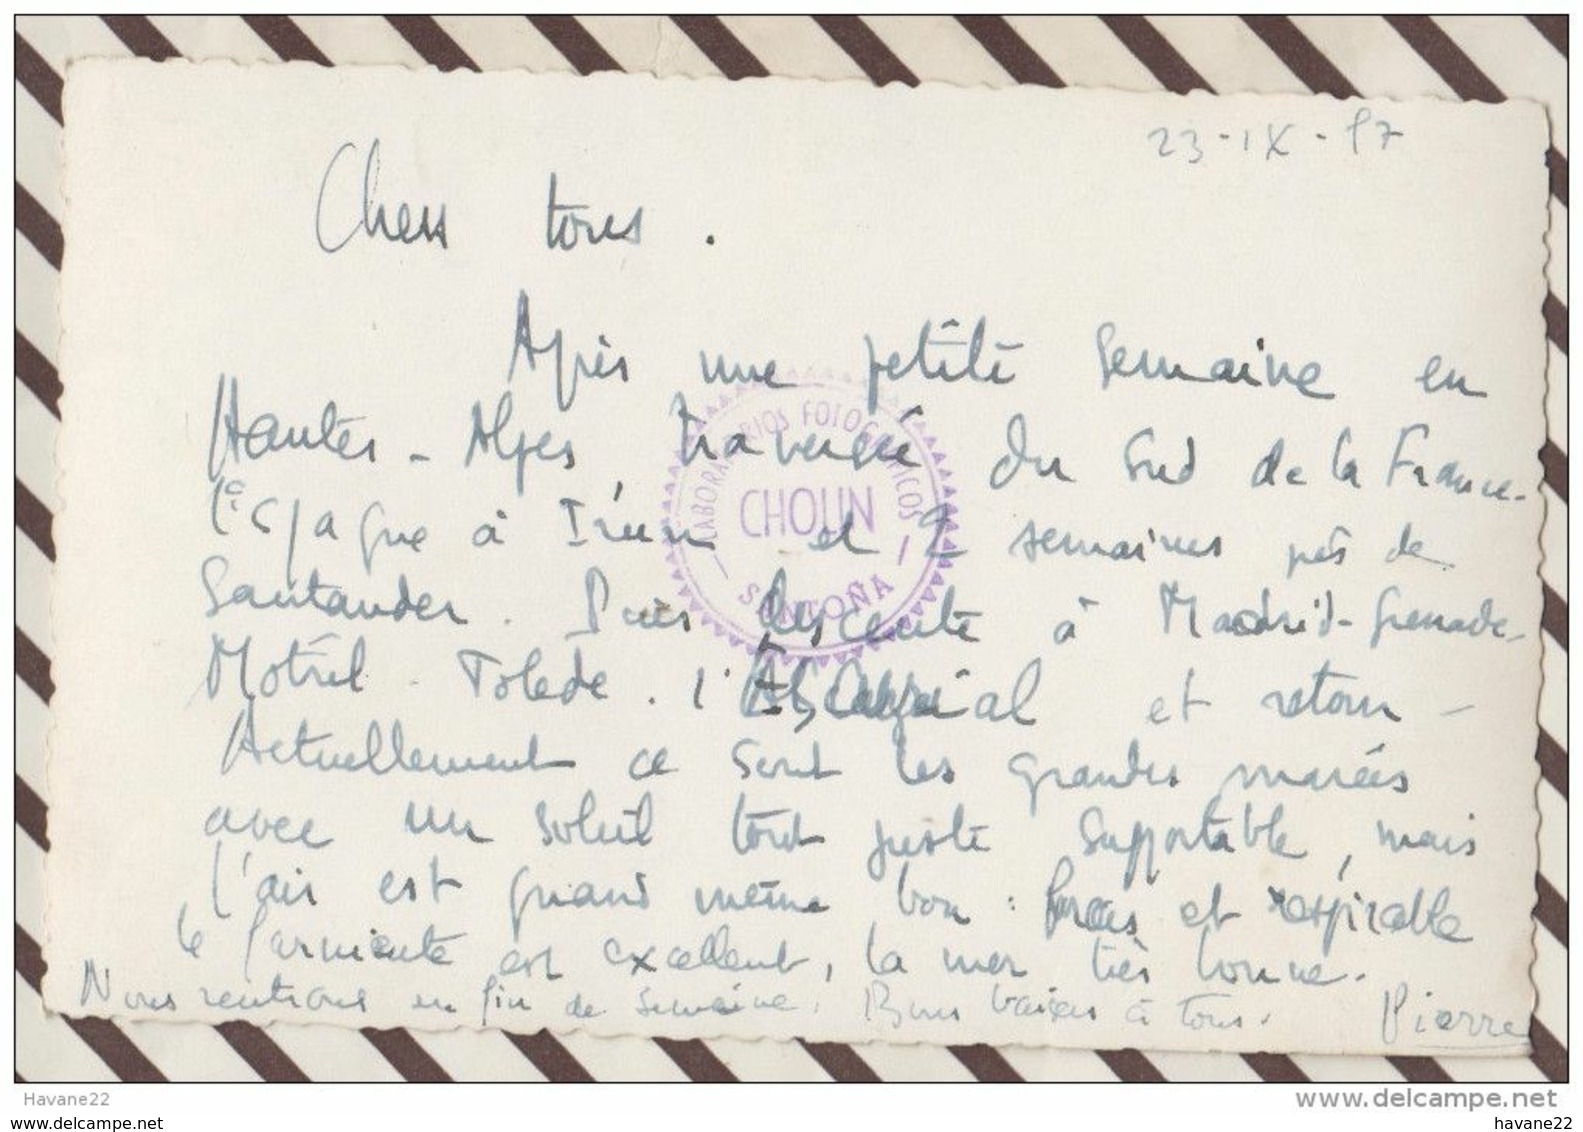 23-IX-57
Chers tous.
Après une petite semaine en
Hautes-Alpes, traversée du Sud de la France.
l'Espagne à Irún et 2 semaines près de
Santander. Puis descente à Madrid-Grenade-
Motril-Tolede. l'Escorial et retour-
Actuellement ce sont les grandes marées
avec un soleil tout juste supportable, mais
l'air est quand même bon : frais et respirable
le farniente est excellent, la mer très bonne.
Nous rentrons en fin de semaine. Bons baisers à tous. Pierre
LABORATORIOS FOTOGRAFICOS
CHOLIN
SANTOÑA
Havane22
www.delcampe.net
havane22
havane22